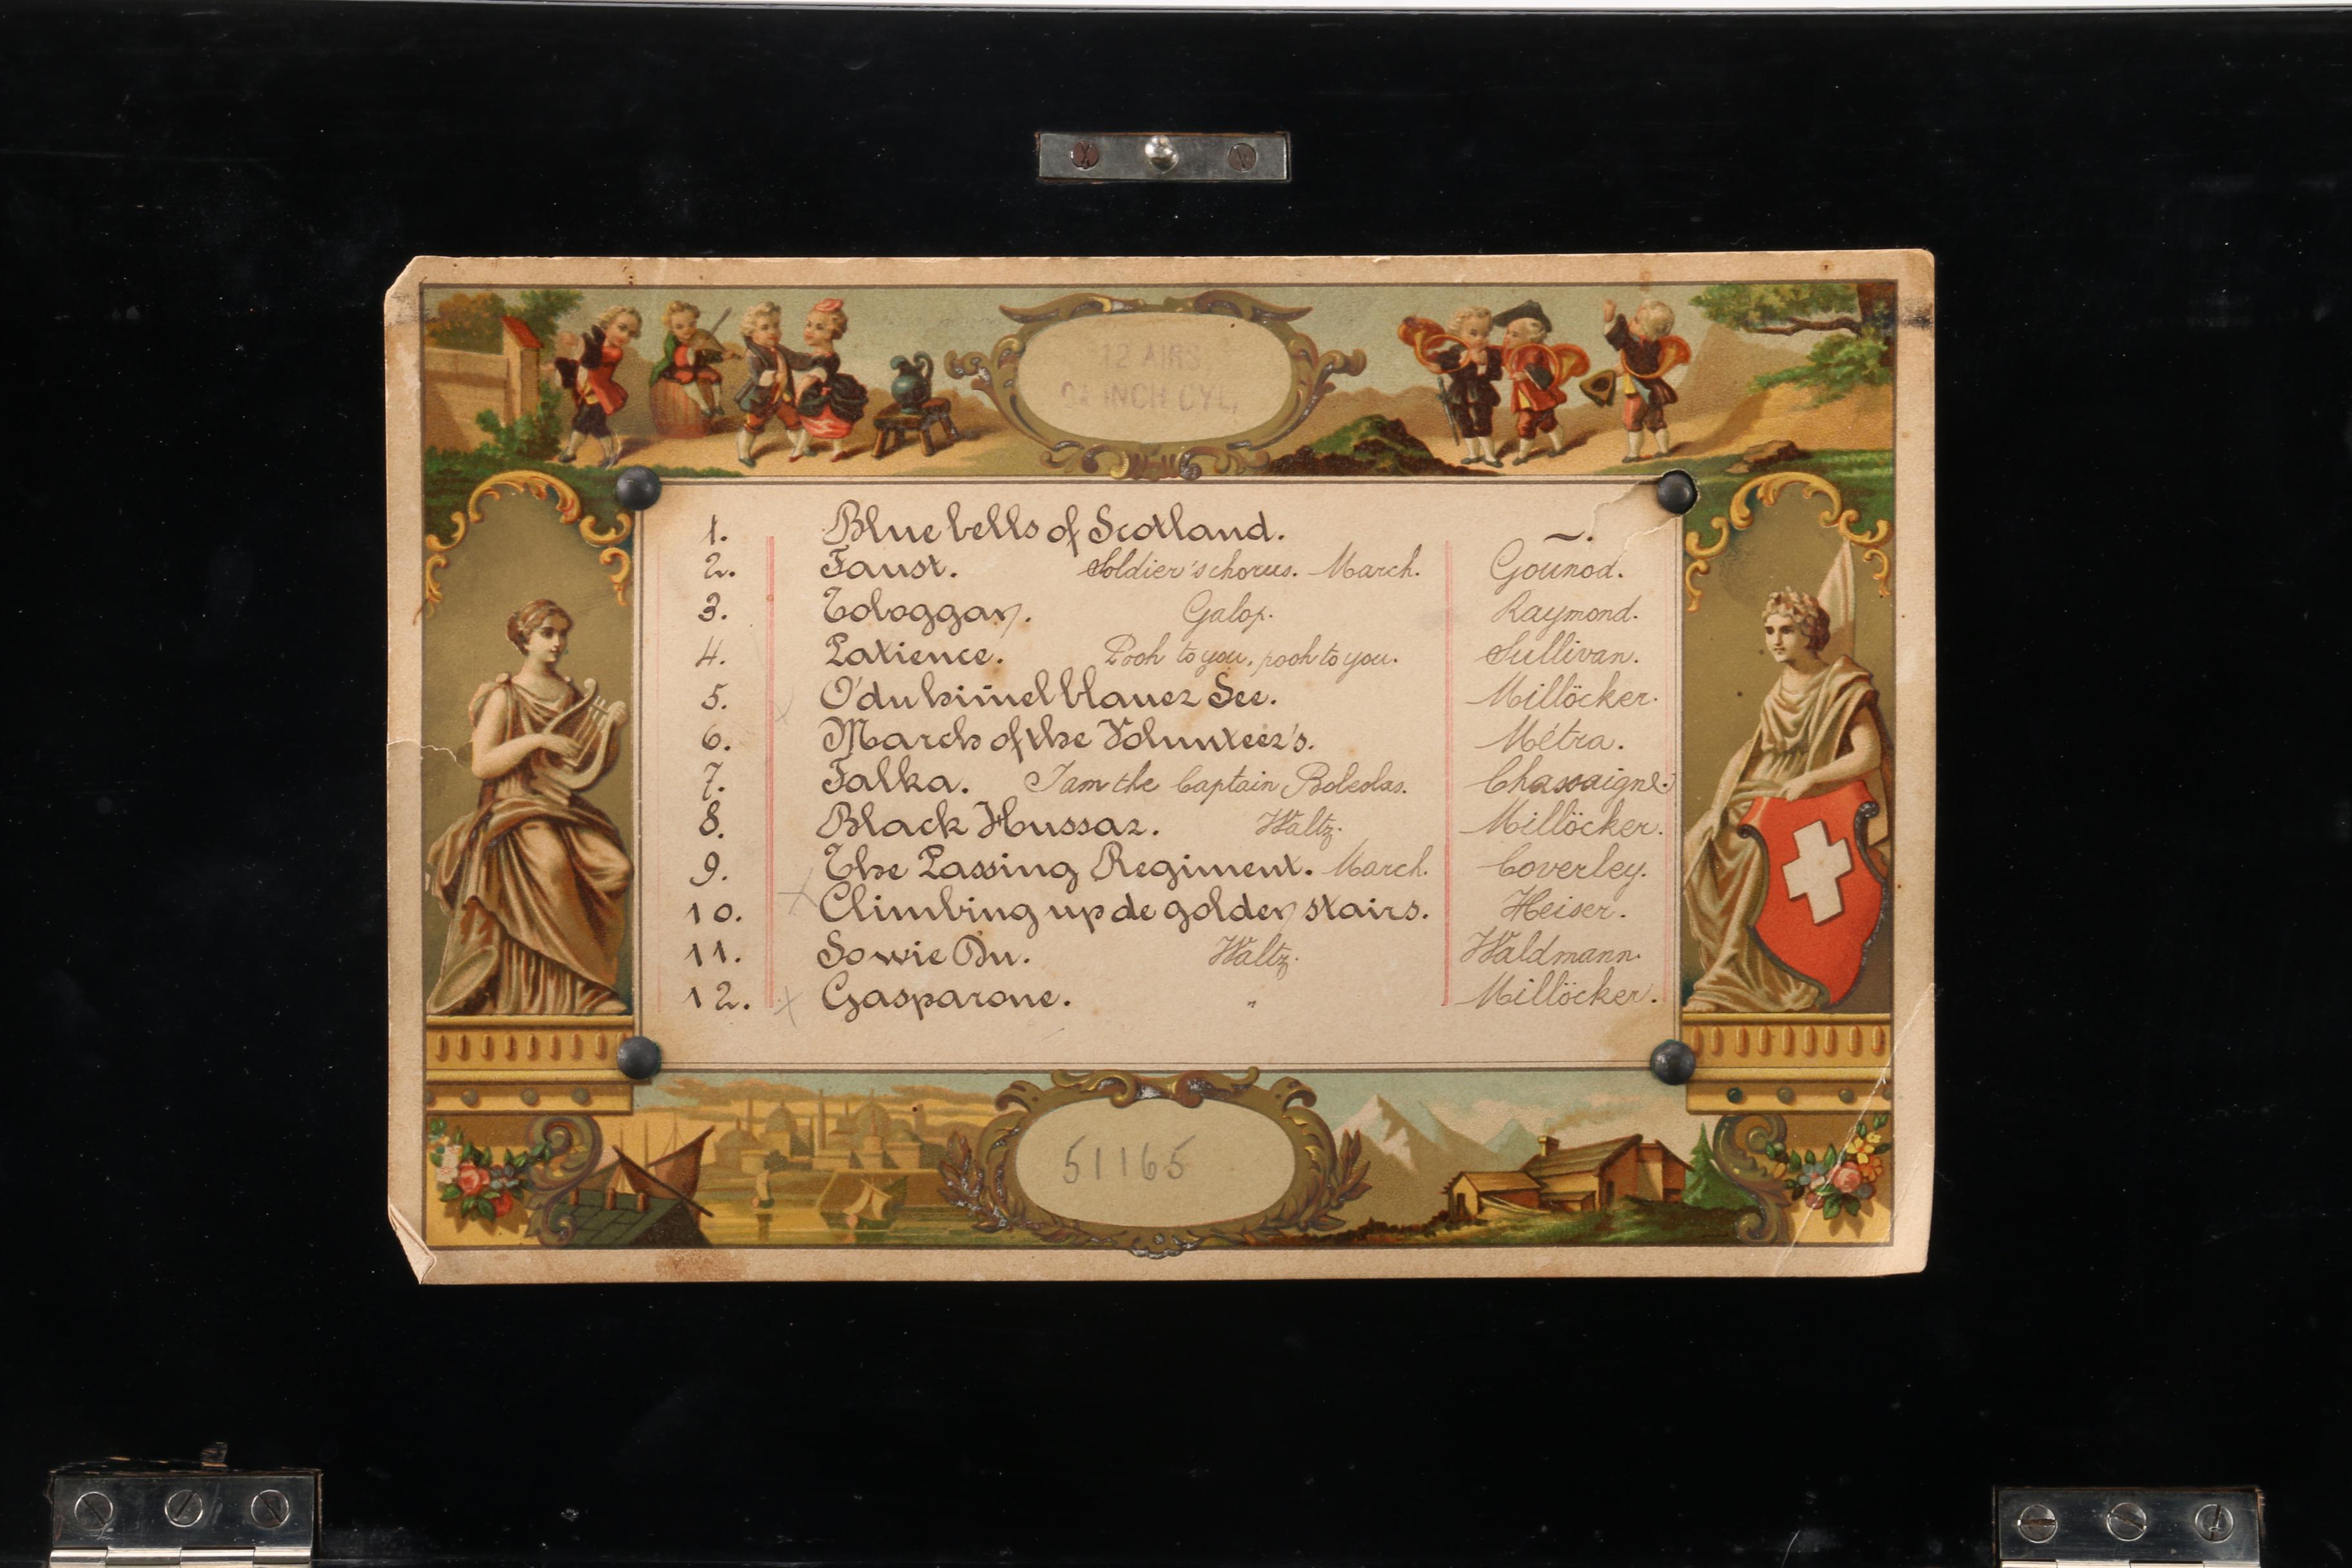 12 AIRS,
INCH CYL,
1. Blue bells of Scotland. ~.
2. Faust. Soldier's chorus. March. Gounod.
3. Tologgan. Galop. Raymond.
4. Patience. Pooh to you, pooh to you. Sullivan.
5. O' du him̄el blauer See. Millöcker.
6. March of the Volunteer's. Métra.
7. Falka. I am the Captain Boleslas. Chassaigne.
8. Black Hussar. Waltz. Millöcker.
9. The Passing Regiment. March. Coverley.
10. Climbing up de golden stairs. Heiser.
11. Sowie Du. Waltz. Waldmann.
12. Gasparone. " Millöcker.
51165